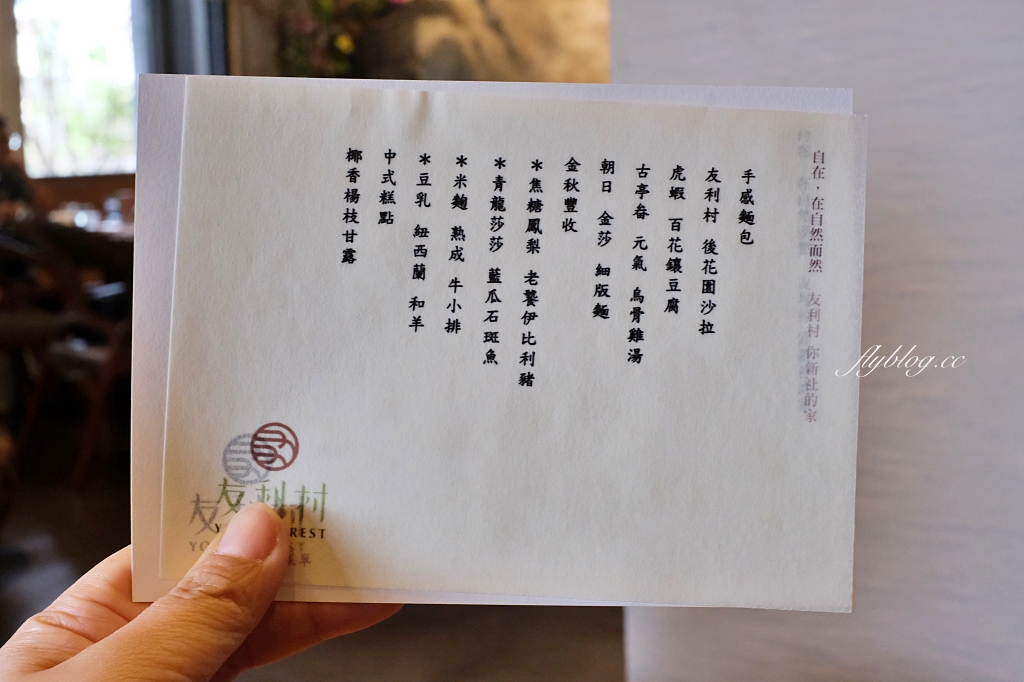 自在，在自然而然 友利村 你新社的家
手感麵包
友利村 後花園沙拉
虎蝦 百花鑲豆腐
古亭畚 元氣 烏骨雞湯
朝日 金莎 細版麵
金秋豐收
＊焦糖鳳梨 老饕伊比利豬
＊青龍莎莎 藍瓜石斑魚
＊米麴 熟成 牛小排
＊豆乳 紐西蘭 和羊
中式糕點
椰香楊枝甘露
友利村
REST
flyblog.cc